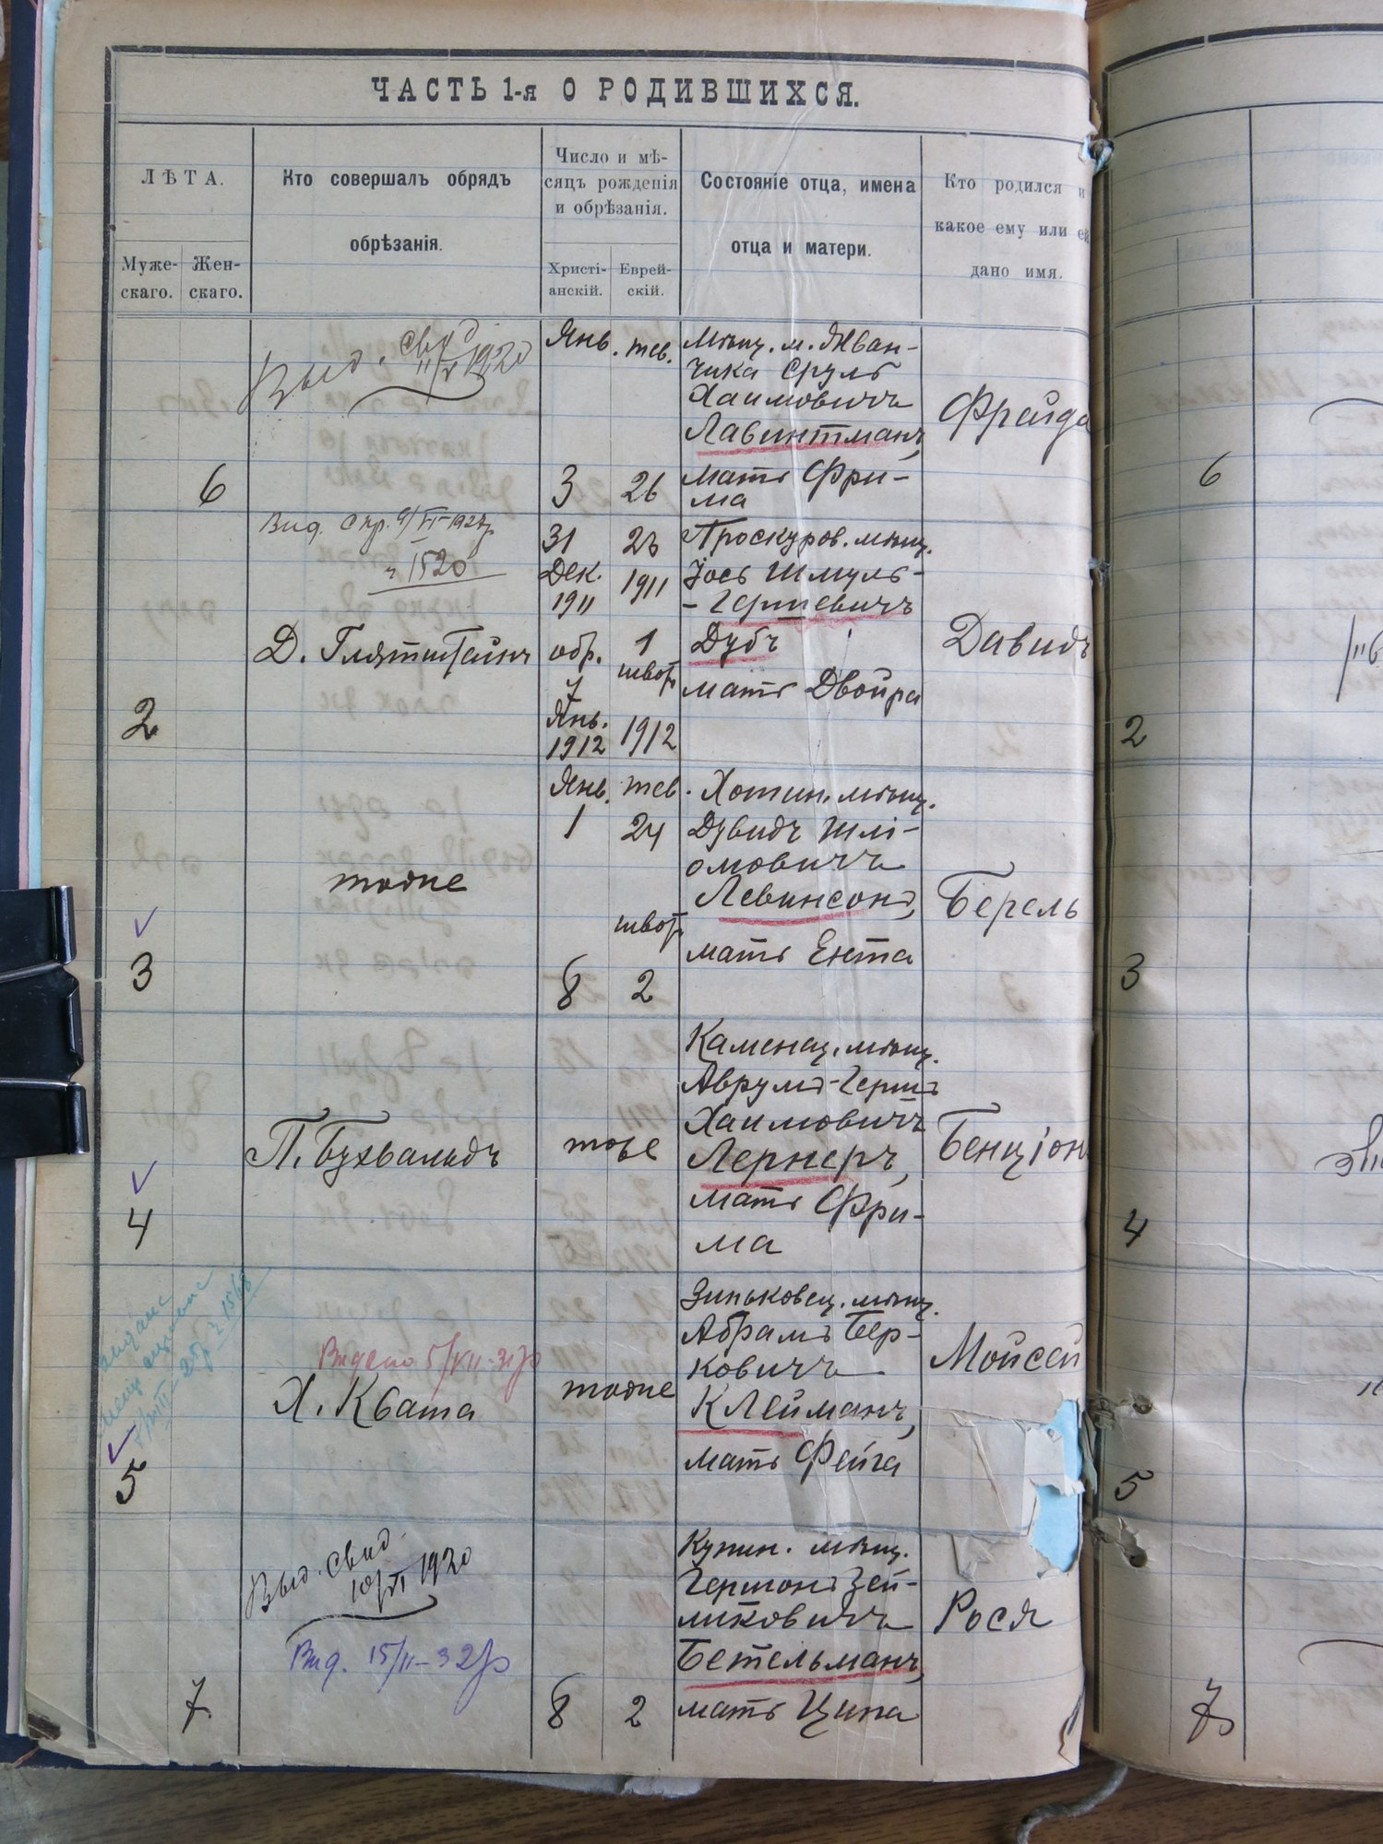 ЧАСТЬ 1-я О РОДИВШИХСЯ.
ЛѢТА.
Муже-
скаго.
Жен-
скаго.
Кто совершалъ обрядъ
обрѣзанія.
Число и мѣ-
сяцъ рожденія
и обрѣзанія.
Христі-
анскій.
Еврей-
скій.
Состояніе отца, имена
отца и матери.
Кто родился и
какое ему или ей
дано имя.
6
Выд. свид
11/V 1920
Янв. тев.
3 26
Мѣщ. м. Жван-
чика Сруль
Хаимовичъ
Лавентманъ,
мать Фри-
ма
Фрейда
6
Вид. спр. 9/VI-1927р
ч 1520
2
Д. Глятштайнъ
31 23
Дек. 1911
1911
обр. 1
7 швот
Янв.
1912 1912
Проскуров. мѣщ.
Іось Шмуль-
-Гершевичъ
Дубъ
мать Двойра
Давидъ
2
3
тоже
Янв. тев.
1 24
швот
8 2
Хотин. мѣщ.
Дувидъ Шлі-
омовичъ
Левинсонъ,
мать Ента
Берель
3
4
П. Бухвальдъ
тоже
Каменец. мѣщ.
Аврумъ-Гершъ
Хаимовичъ
Лернеръ,
мать Фри-
ма
Бенціон
4
5
Видано 5/VII-31р
Х. Квата
тоже
Зиньковец. мѣщ.
Абрамъ Бер-
ковичъ
Клейманъ,
мать Фейга
Мойсей
5
Выд. Свид.
10/VI 1920
Вид. 15/II-32р
7
8 2
Купин. мѣщ.
Гершонъ Зей-
ликовичъ
Бетельманъ,
мать Ципа
Рося
7